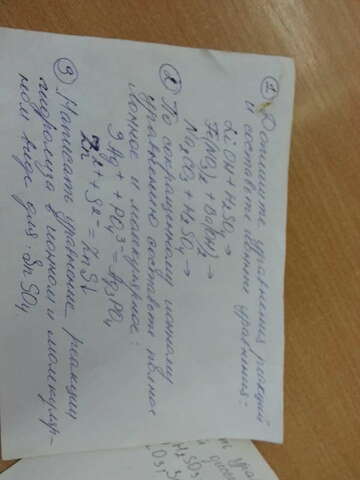 ① Допишите уравнения реакций
и составьте ионные уравнения:
LiOH + H₂SO₄ →
Fe(NO₃)₂ + Ba(OH)₂ →
Na₂CO₃ + H₂SO₄ →
② По сокращенному ионному
уравнению составьте полное
ионное и молекулярное:
3Ag⁺ + PO₄³⁻ = Ag₃PO₄
Zn²⁺ + S²⁻ = ZnS↓
③ Написать уравнение реакции
гидролиза в ионном и молекуляр-
ном виде для: SnSO₄.